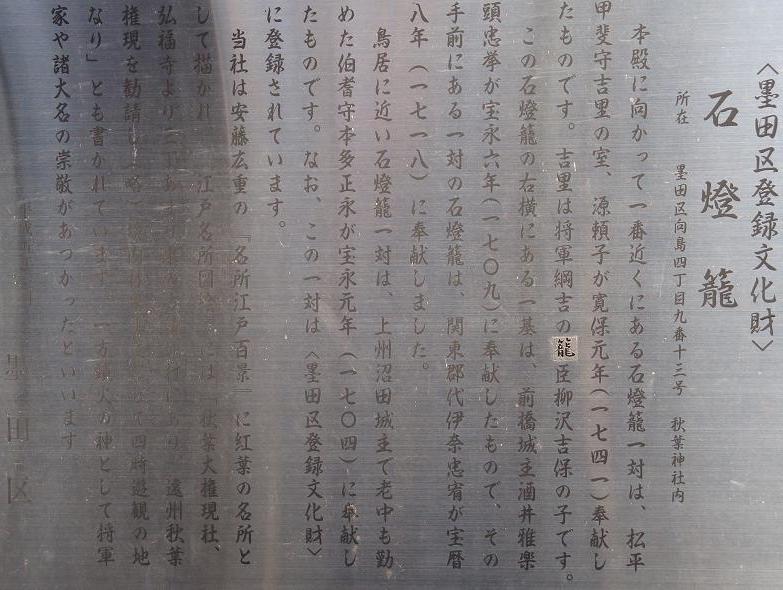 〈墨田区登録文化財〉
石燈籠
所在 墨田区向島四丁目九番十三号 秋葉神社内
本殿に向かって一番近くにある石燈籠一対は、松平
甲斐守吉里の室、源頼子が寛保元年(一七四一)奉献し
たものです。吉里は将軍綱吉の籠臣柳沢吉保の子です。
この石燈籠の右横にある一基は、前橋城主酒井雅楽
頭忠挙が宝永六年(一七〇九)に奉献したもので、その
手前にある一対の石燈籠は、関東郡代伊奈忠宥が宝暦
八年(一七一八)に奉献しました。
鳥居に近い石燈籠一対は、上州沼田城主で老中も勤
めた伯耆守本多正永が宝永元年(一七〇四)に奉献し
たものです。なお、この一対は〈墨田区登録文化財〉
に登録されています。
当社は安藤広重の『名所江戸百景』に紅葉の名所と
して描かれ 江戸名所図 は 秋葉大権現社、
弘福寺より 遠州秋葉
権現を勧請し 四時遊観の地
なり」とも書かれています。一方鎮火の神として将軍
家や諸大名の崇敬があつかったといいます
墨田区